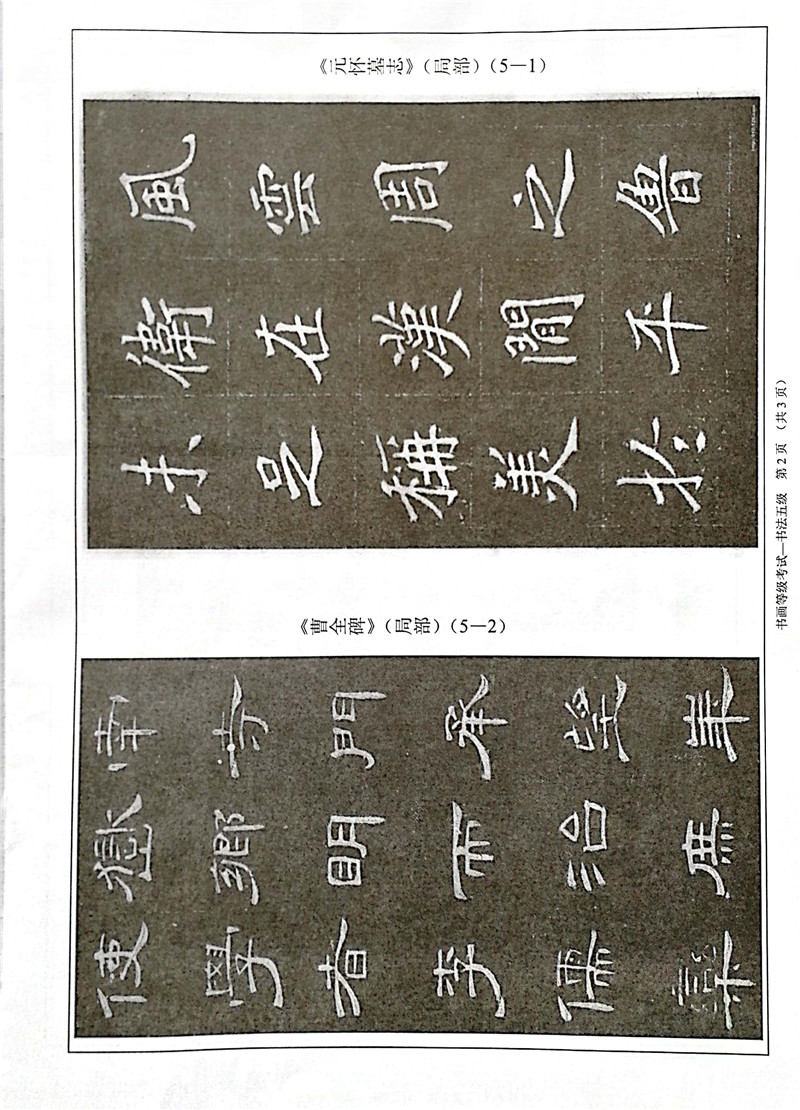 《元怀墓志》（局部）（5—1）
風雲周之魯
衛在漢間平
未足稱美於
《曹全碑》（局部）（5—2）
南寺門承望華
嶽鄉明而治庶
使學者李儒欒
书画等级考试—书法五级 第 2 页 （共 3 页）